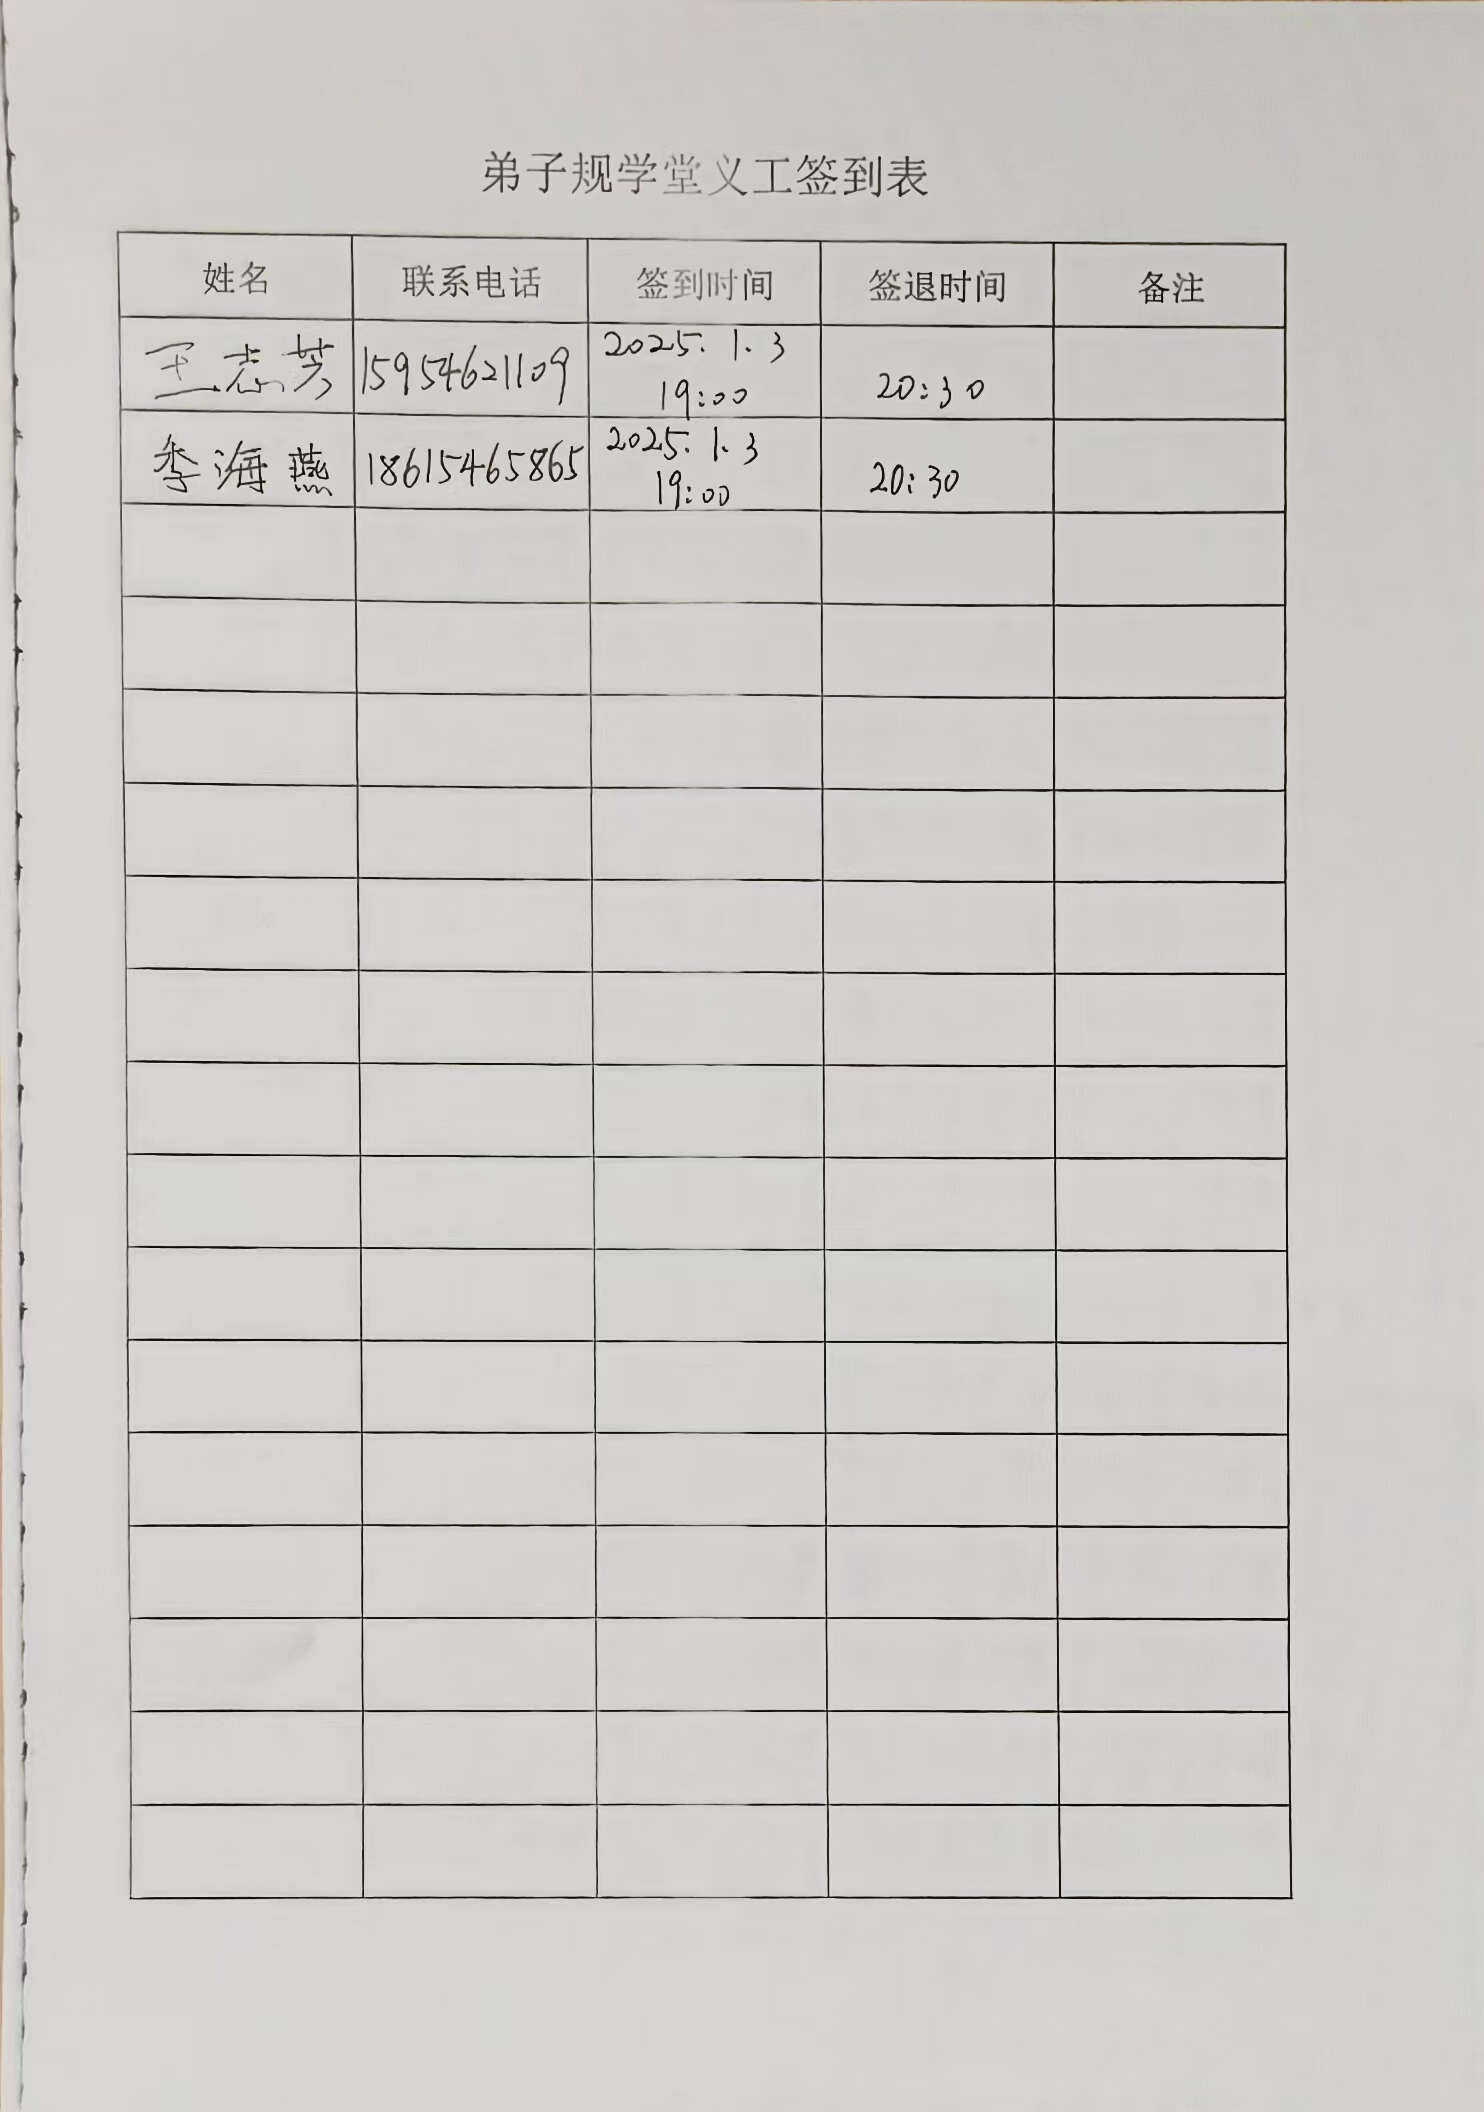 弟子规学堂义工签到表
姓名 联系电话 签到时间 签退时间 备注
王志芳 15954621109 2025.1.3 19:00 20:30
李海燕 18615465865 2025.1.3 19:00 20:30